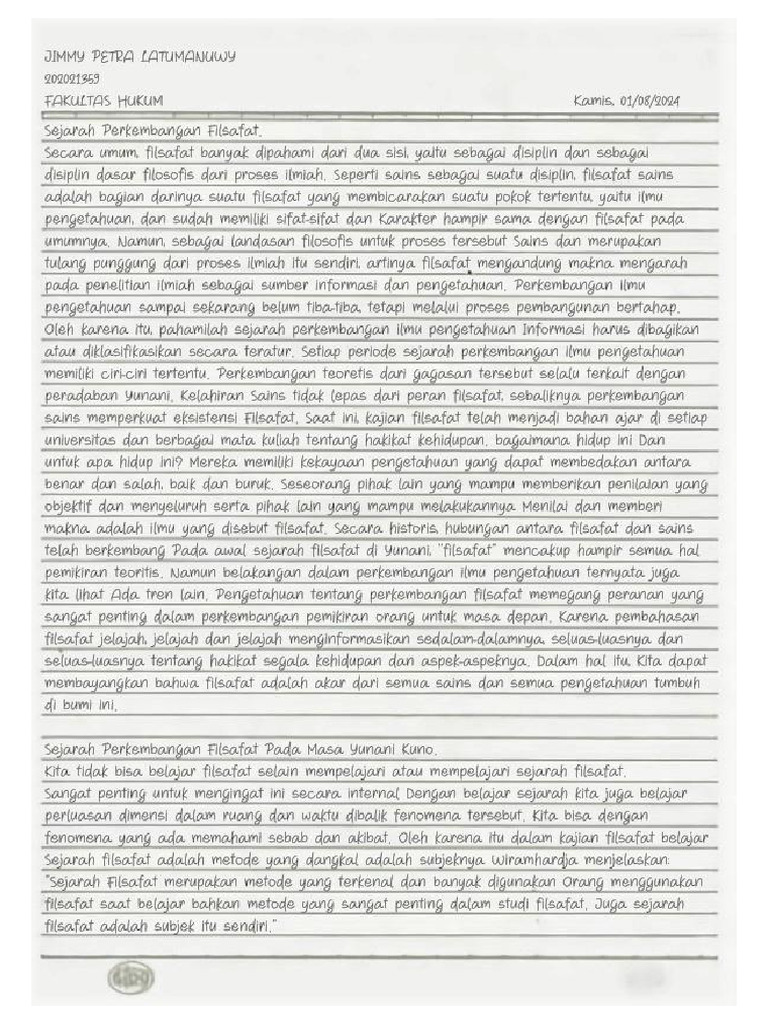 JIMMY PETRA LATUMANUWY
202021359
FAKULTAS HUKUM Kamis, 01/08/2024
Sejarah Perkembangan Filsafat.
Secara umum, filsafat banyak dipahami dari dua sisi, yaitu sebagai disiplin dan sebagai
disiplin dasar filosofis dari proses ilmiah. Seperti sains sebagai suatu disiplin, filsafat sains
adalah bagian darinya suatu filsafat yang membicarakan suatu pokok tertentu, yaitu ilmu
pengetahuan, dan sudah memiliki sifat-sifat dan Karakter hampir sama dengan filsafat pada
umumnya. Namun, sebagai landasan filosofis untuk proses tersebut Sains dan merupakan
tulang punggung dari proses ilmiah itu sendiri. artinya filsafat mengandung makna mengarah
pada penelitian ilmiah sebagai sumber informasi dan pengetahuan. Perkembangan Ilmu
pengetahuan sampai sekarang belum tiba-tiba, tetapi melalui proses pembangunan bertahap.
Oleh karena itu, pahamilah sejarah perkembangan ilmu pengetahuan Informasi harus dibagikan
atau diklasifikasikan secara teratur. Setiap periode sejarah perkembangan ilmu pengetahuan
memiliki ciri-ciri tertentu. Perkembangan teoretis dari gagasan tersebut selalu terkait dengan
peradaban Yunani. Kelahiran Sains tidak lepas dari peran filsafat, sebaliknya perkembangan
sains memperkuat eksistensi Filsafat. Saat ini, kajian filsafat telah menjadi bahan ajar di setiap
universitas dan berbagai mata kuliah tentang hakikat kehidupan, bagaimana hidup ini Dan
untuk apa hidup ini? Mereka memiliki kekayaan pengetahuan yang dapat membedakan antara
benar dan salah, baik dan buruk. Seseorang pihak lain yang mampu memberikan penilaian yang
objektif dan menyeluruh serta pihak lain yang mampu melakukannya Menilai dan memberi
makna adalah ilmu yang disebut filsafat. Secara historis, hubungan antara filsafat dan sains
telah berkembang Pada awal sejarah filsafat di Yunani, "filsafat" mencakup hampir semua hal
pemikiran teoritis. Namun belakangan dalam perkembangan ilmu pengetahuan ternyata juga
kita lihat Ada tren lain. Pengetahuan tentang perkembangan filsafat memegang peranan yang
sangat penting dalam perkembangan pemikiran orang untuk masa depan. Karena pembahasan
filsafat jelajah, jelajah dan jelajah menginformasikan sedalam-dalamnya, seluas-luasnya dan
seluas-luasnya tentang hakikat segala kehidupan dan aspek-aspeknya. Dalam hal itu, Kita dapat
membayangkan bahwa filsafat adalah akar dari semua sains dan semua pengetahuan tumbuh
di bumi ini.
Sejarah Perkembangan Filsafat Pada Masa Yunani Kuno.
Kita tidak bisa belajar filsafat selain mempelajari atau mempelajari sejarah filsafat.
Sangat penting untuk mengingat ini secara internal Dengan belajar sejarah kita juga belajar
perluasan dimensi dalam ruang dan waktu dibalik fenomena tersebut. Kita bisa dengan
fenomena yang ada memahami sebab dan akibat. Oleh karena itu dalam kajian filsafat belajar
Sejarah filsafat adalah metode yang dangkal adalah subjeknya Wiramhardja menjelaskan:
"Sejarah Filsafat merupakan metode yang terkenal dan banyak digunakan Orang menggunakan
filsafat saat belajar bahkan metode yang sangat penting dalam studi filsafat. Juga sejarah
filsafat adalah subjek itu sendiri."